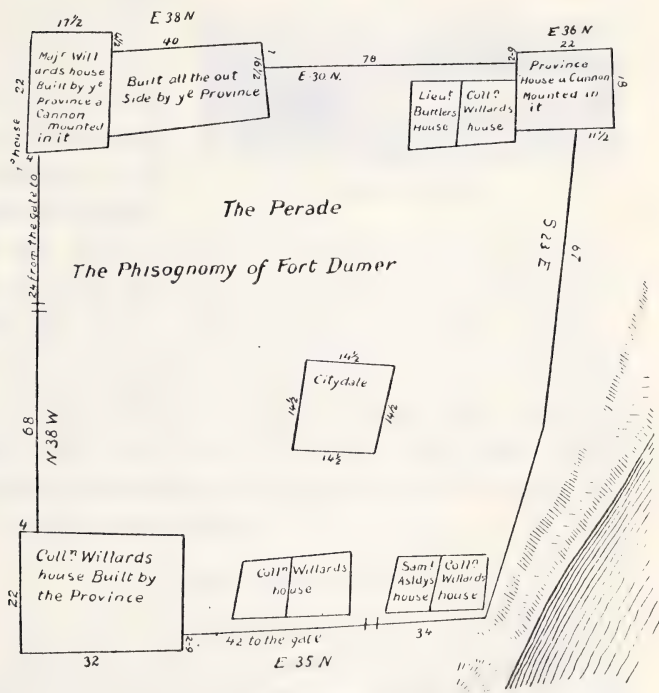 17½
E 38 N
E 36 N
22
40
7½
Majr Will
ards house
Built by ye
Province a
Cannon
mounted
in it
22
4
Built all the out
Side by ye Province
16½
7
78
E 30 N.
2-6
Lieut
Buttlers
House
Colln
Willards
house
Province
House a Cannon
Mounted in
it
18
11½
24 from the gate to
ye house
S 23 E
67
The Perade
The Phisognomy of Fort Dumer
14½
Citydale
14½
14½
14½
68
N 38 W
4
Colln Willards
house Built by
the Province
22
32
6-2
Colln Willards
house
Saml
Asldys
house
Colln
Willards
house
42 to the gate
34
E 35 N